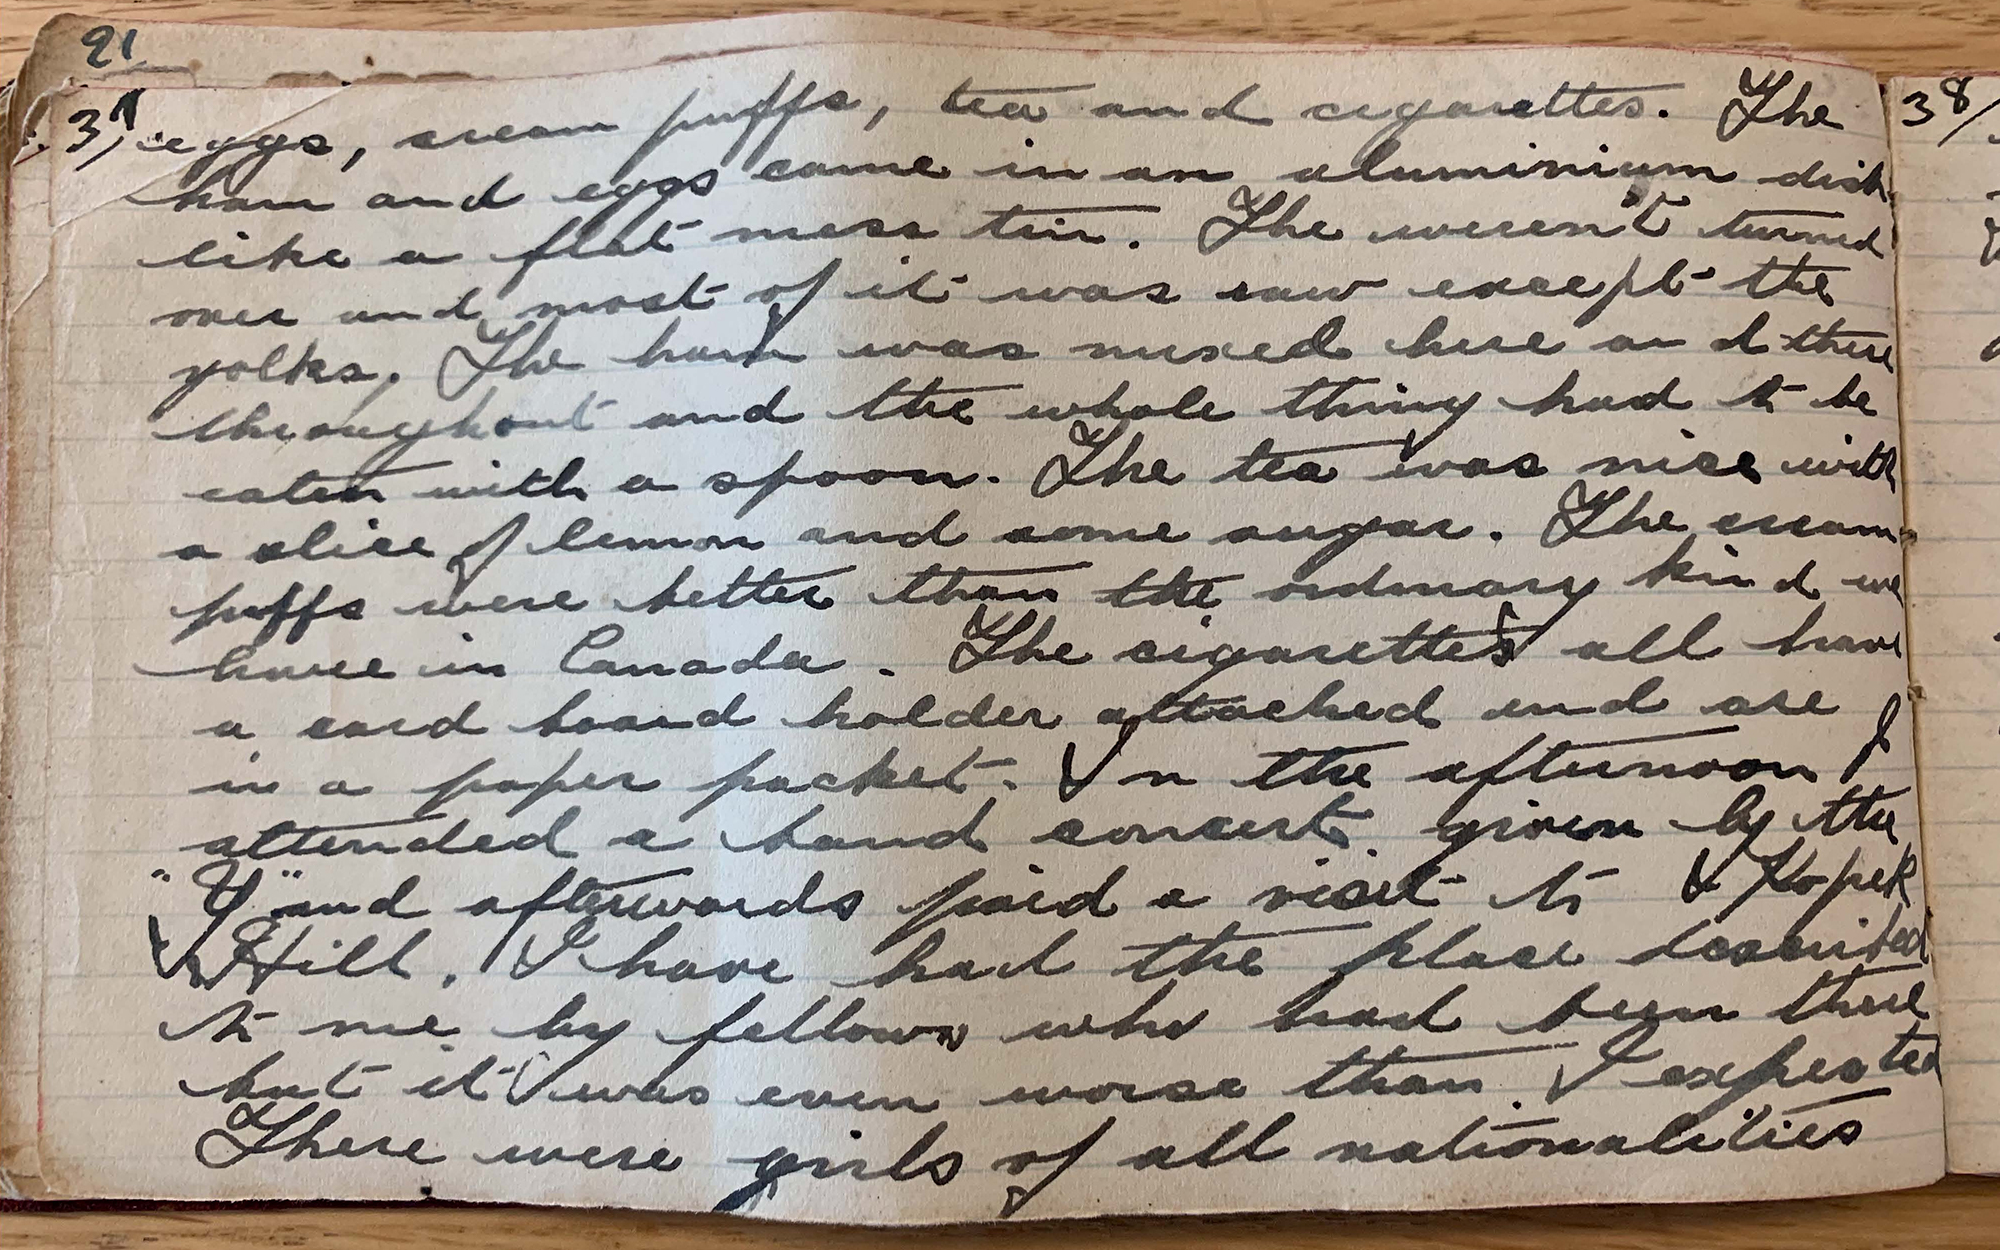 21
37/ eggs, cream puffs, tea and cigarettes. The
ham and eggs came in an aluminium dish
like a flat mess tin. The weren't turned
over and most of it was raw except the
yolks. The ham was mixed here and there
throughout and the whole thing had to be
eaten with a spoon. The tea was nice with
a slice of lemon and some sugar. The cream
puffs were better than the ordinary kind we
have in Canada. The cigarettes all have
a card board holder attached and are
in a paper packet. In the afternoon I
attended a band concert given by the
"Y" and afterwards paid a visit to Kopek
Hill. I have had the place described
to me by fellows who had been there
but it was even worse than I expected
There were girls of all nationalities
38/